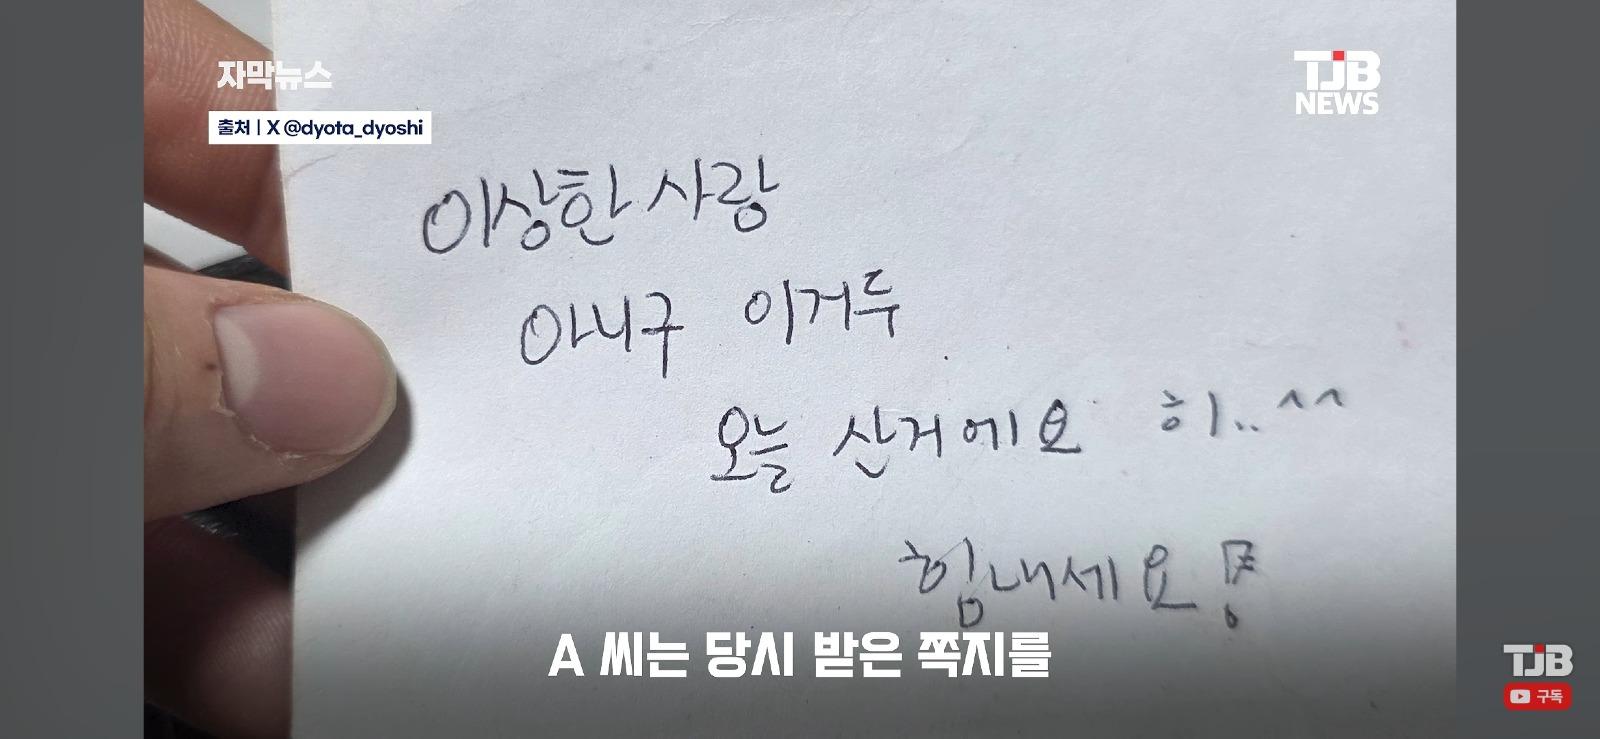 자막뉴스
TJB
NEWS
출처 | X @dyota_dyoshi
이상한 사랑
아니구 이거두
오늘 산거에요 히..^^
힘내세요!
A 씨는 당시 받은 쪽지를
TJB
구독